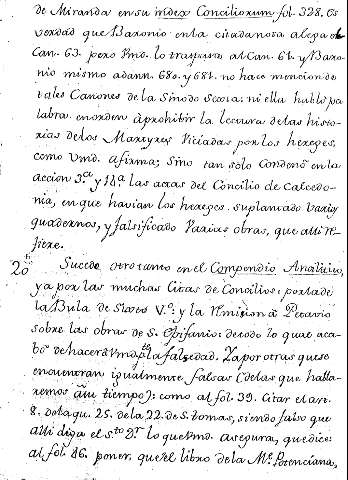 de Miranda en su index Conciliorum fol. 328. Es
verdad que Baronio en la cita da nota alega el
Can. 63. pero Vmd. lo traspasa al Can. 61. y Baro-
nio mismo ad ann. 680. y 681. no hace mencion de
tales Canones de la Sinodo Sexta: ni ella habló pa
labra en orden à prohibir la lectura de las histo-
rias de los Martyres viciadas por los hereges,
como Vmd. afirma; Sino tan solo Condenó en la
accion 3.ª y 14.ª las actas del Concilio de Calcedo-
nia, en que havian los hereges suplantado varios
quadernos, y falsificado varias obras, que alli re-
fiere.
20 Sucede otro tanto en el Compendio Analitico,
ya por las muchas Citas de Concilios: por la de
la Bula de Sixto V.º: y la remision à Petavio
sobre las obras de S. Epifanio: de todo lo qual aca-
bo de hacer à Vmd. pte la falsedad. Ya por otras que se
encuentran igualmente falsas (de las que habla-
remos à su tiempo): como al fol. 39. Citar el ar.
8. de la qu. 25. de la 22. de S. Tomas, siendo falso que
alli diga el S.to D.r lo que Vmd. asegura, que dice:
al fol. 46. poner, que el libro de la M.e Potenciana,